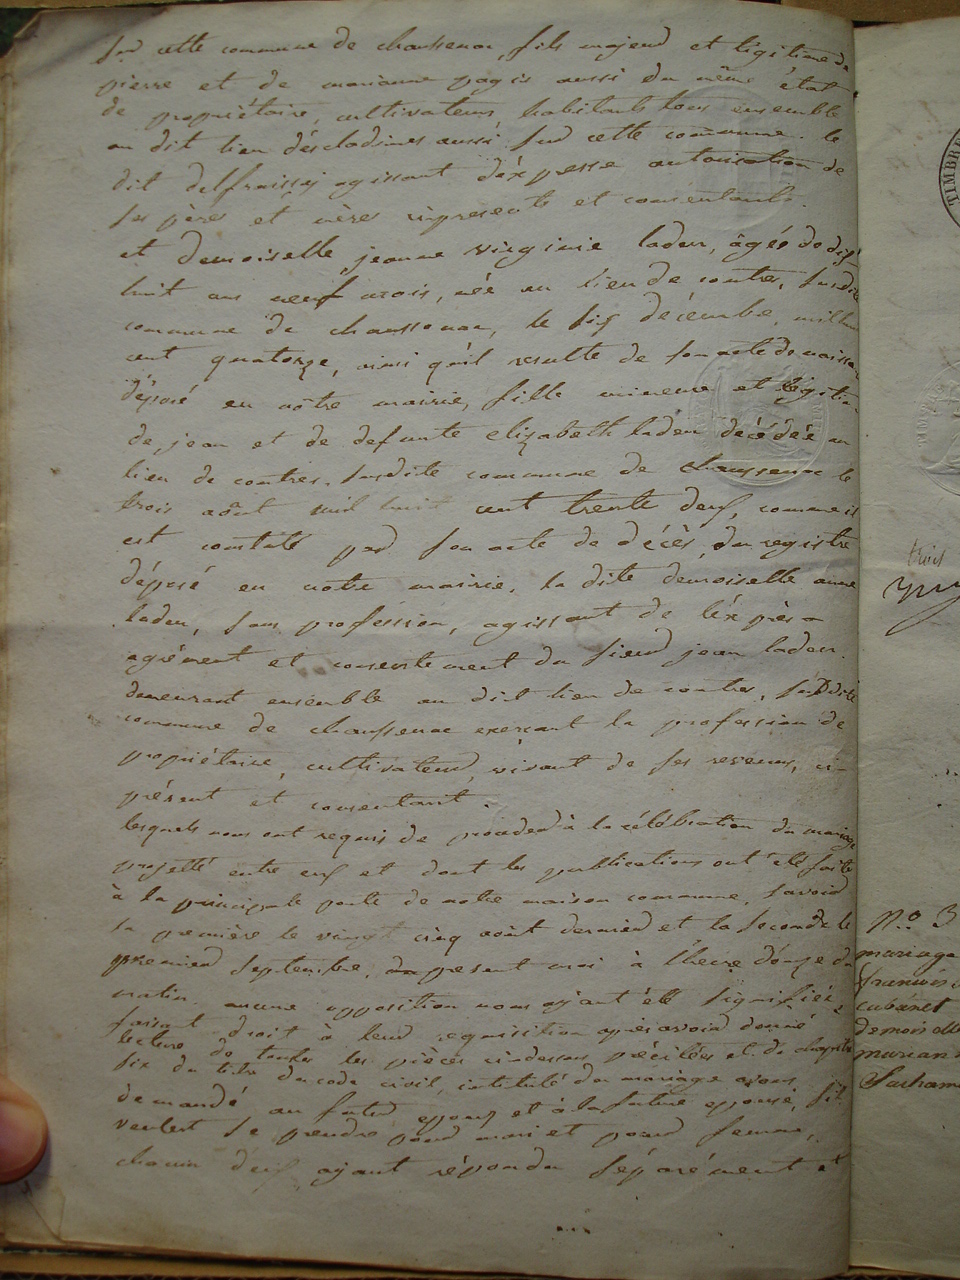 sud cette commune de chaussenac, fils majeur et légitime de
pierre et de marianne pagis aussi du même état
de propriétaire, cultivateurs, habitants tous ensemble
au dit lieu aussi sud cette commune. le
dit delfraissÿ agissant d'éxpresse autorisation de
ses pères et mères et consentants.
et demoiselle jeanne virginie laden, âgée de dix
huit ans neuf mois, née au lieu de contres, susdite
commune de chaussenac, le six décembre, mil huit
cent quatorze, ainsi qu'il resulte de son acte de naissan
déposé en nôtre mairie, fille mineure et légitim
de jean et de defunte elizabeth laden décédée au
lieu de contres, susdite commune de chaussenac le
trois août mil huit cent trente deux, comme il
est constaté pad son acte de décès, du registre
déposé en notre mairie, la dite demoiselle anne
laden, sans profession, agissant de l'éxprès
agrément et consentement du sieur jean laden.
demeurant ensemble au dit lieu de contres, susdite
commune de chaussenac exerçant la profession de
propriétaire, cultivateur, vivant de ses revenus, ci-
présent et consentant.
lesquels nous ont requis de proceder à la célébration du mariage
projetté entre eux et dont les publications ont été faite
à la principale porte de notre maison commune, savoir
la première le vingt cinq août dernier et la seconde le
premier septembre, du présent mois à l'heure d'onze du
matin. aucune opposition nous ayant été signifiée,
faisant droit à leur requisition après avoir donné
lecture de toutes les pièces cidessus précitées et du chapitre
six du titre du code civil, intitulé du mariage avons
demandé au futur epoux et à la future epouse, s'il
veulent se prendre pour mari et pour femme,
chacun d'eux ayant répondu séparément et
TIMBRE
trois
N.º 3
mariage
françois
cubanet
demoiselle
marian